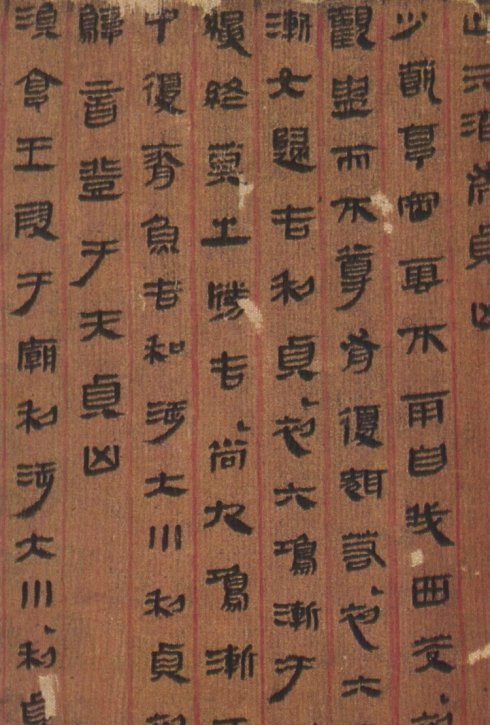 貞凶
少亨密雲不雨自我西茭
觀盥而不尊有復若初六
漸女歸吉利貞初六鳴漸于
終莫之勝吉尚九鳴漸
中復魚吉和涉大川利貞
音登于天貞凶
渙亨王叚于廟利涉大川利貞